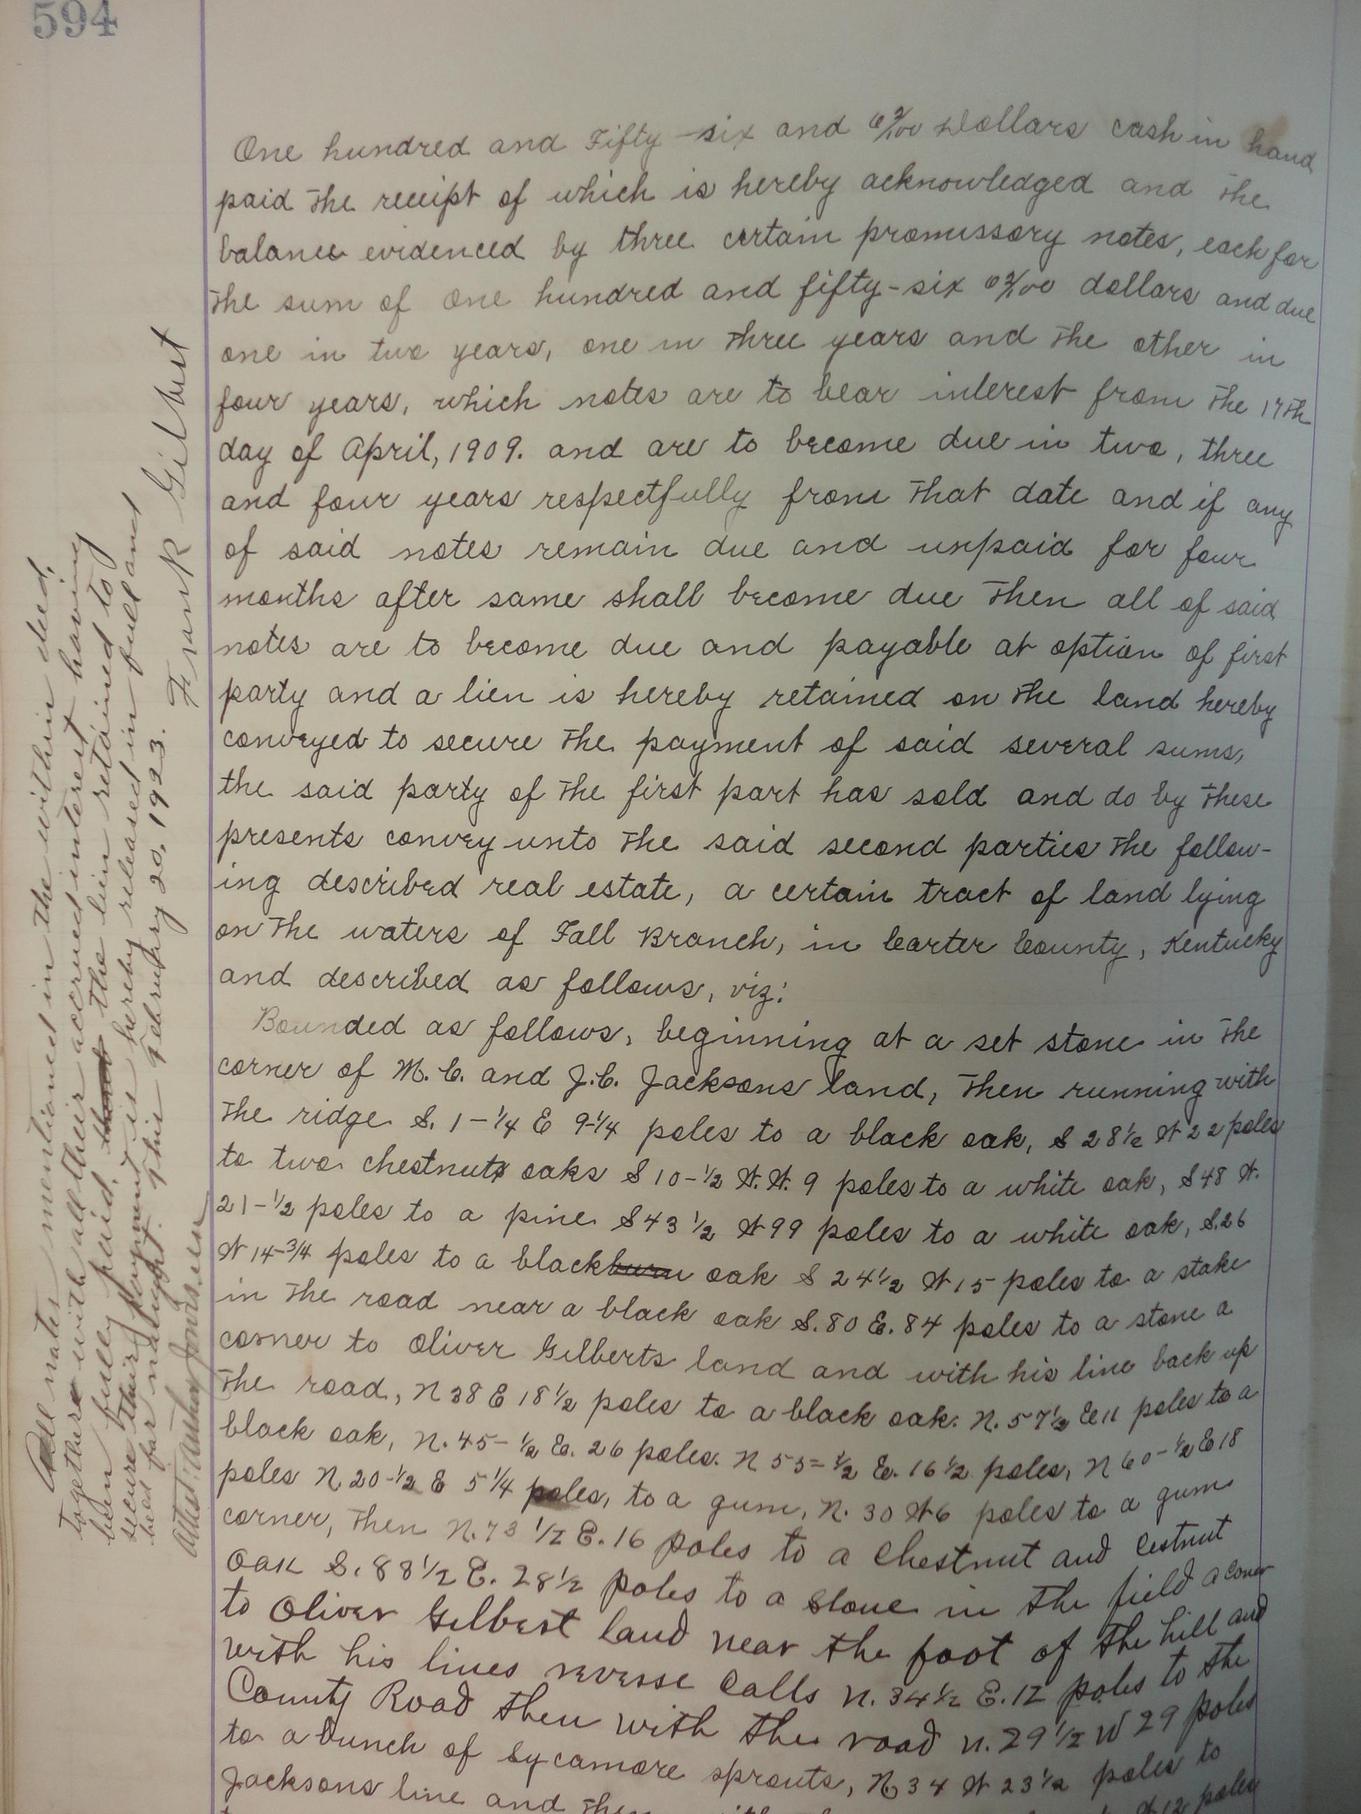 594
One hundred and Fifty-six and 62/100 Dollars cash in hand
paid The receipt of which is hereby acknowledged and The
balance evidenced by three certain promissory notes, each for
The sum of One hundred and fifty-six 62/100 dollars and due
one in two years, one in Three years and The other in
four years, which notes are to bear interest from The 17Th
day of April, 1909. and are to become due in two, three
and four years respectfully from That date and if any
of said notes remain due and unpaid for four
months after same shall become due Then all of said
notes are to become due and payable at option of first
party and a lien is hereby retained on The land hereby
conveyed to secure The payment of said several sums,
the said party of The first part has sold and do by These
presents convey unto The said second parties The follow-
ing described real estate, a certain tract of land lying
on The waters of Fall Branch, in Carter County, Kentucky
and described as follows, viz:
Bounded as follows, beginning at a set stone in The
corner of M. C. and J. C. Jacksons land, Then running with
The ridge S. 1-1/4 E 9-1/4 poles to a black oak, S 28 1/2 W 22 poles
to two chestnut oaks S 10-1/2 W. W. 9 poles to a white oak, S 48 W.
21-1/2 poles to a pine S 43 1/2 W 99 poles to a white oak, S. 26
W 14-3/4 poles to a black oak S 24 1/2 W 15 poles to a stake
in The road near a black oak S. 80 E. 84 poles to a stone a
corner to Oliver Gilberts land and with his line back up
The road, N 38 E 18 1/2 poles to a black oak. N. 57 1/2 E 11 poles to a
black oak, N. 45-1/2 E. 26 poles. N 55-1/2 E. 16 1/2 poles, N 60-1/2 E 18
poles N 20-1/2 E 5 1/4 poles, to a gum, N. 30 W 6 poles to a gum
corner, Then N. 73 1/2 E. 16 poles to a Chestnut and Cestnut
Oak S. 88 1/2 E. 28 1/2 poles to a stone in The field a corner
to Oliver Gilbert land near the foot of The hill and
with his lines reverse Calls N. 34 1/2 E. 12 poles to The
County Road Then with The road N. 29 1/2 W 29 poles
to a bunch of sycamore sprouts, N 34 W 23 1/2 poles to
Jacksons line and Then W 12 poles
All notes mentioned in the within deed,
together with all their accrued interest having
been fully paid, the lien retained to
secure their payment is hereby released in full and
held for naught. This February 20, 1923.
Frank Gilbert
Attest: